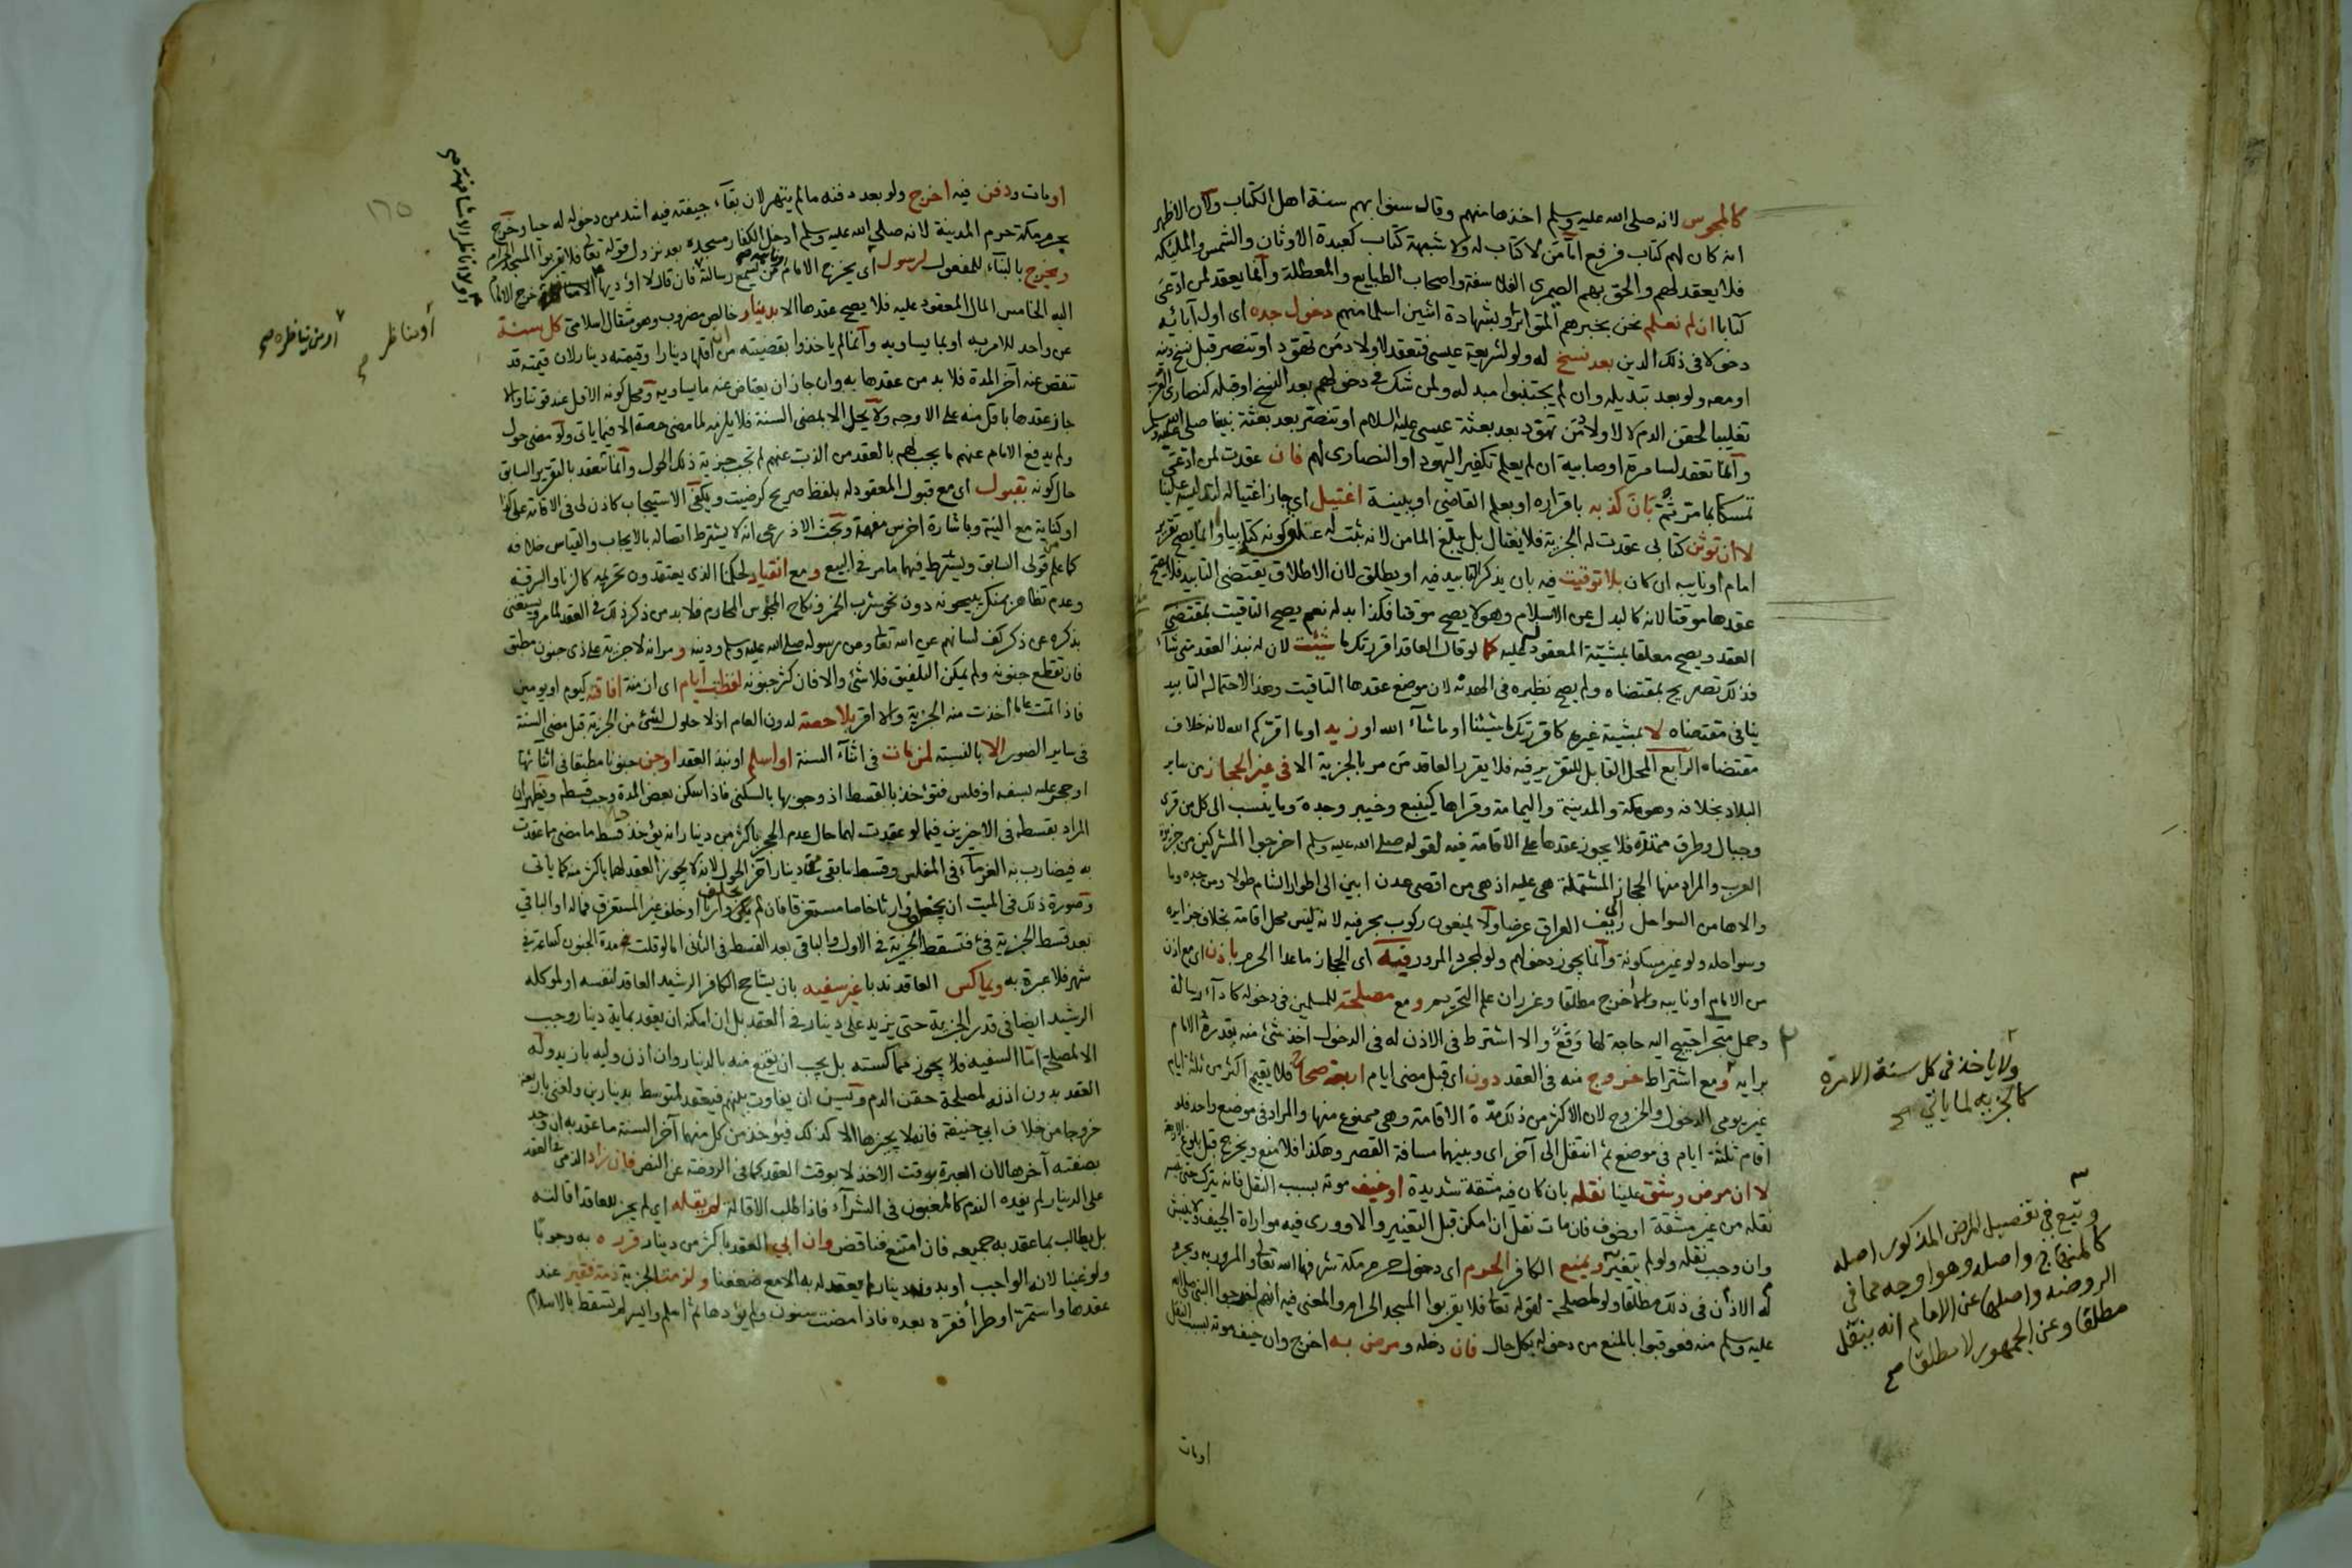 كالمجوس لانه صلى الله عليه وسلم اخذها منهم وقال سنوا بهم سنة اهل الكتاب وكان الاظهر
انه كان لهم كتاب فرفع اما من لا كتاب له ولا شبهة كتاب كعبدة الاوثان والشمس والمليكة
فلا يعقد لهم والحق بهم الصيمري الفلاسفة واصحاب الطبايع والمعطلة وانما يعقد لمن ادعى
كتابا ان لم نعلم نحن بخبرهم المتواتر او بشهادة اثنين اسلما منهم دخول جده اى اول آبائه
دخولا في ذلك الدين بعد نسخ له ولو لشريعة عيسى فتعقد لاولاد من تهود او تنصر قبل نسخ دينه
او معه ولو بعد تبديله وان لم يجتنبوا مبدله ولمن شك في دخولهم بعد النسخ او قبله كنصارى العرب
تغليبا لحقن الدم لا لاولاد من تهود بعد بعثة عيسى عليه السلام او تنصر بعد بعثة نبينا صلى الله عليه وسلم
وانما تعقد لسامرة او صابية ان لم يعلم تكفير اليهود او النصارى لهم فان عقدت لمن ادعى
تمسكا بما مر ثم بان كذبه باقراره او بعلم القاضى او ببينة اغتيل اى جاز اغتياله لتدليسه علينا
لا ان توثن كتابى عقدت له الجزية فلا يغتال بل يبلغ المامن لانه ثبت له كونه كتابيا وانما يصح تقرير
امام او نايبه ان كان بلا توقيت فيه بان يذكر التابيد فيه او يطلق لان الاطلاق يقتضى التابيد فلا يصح
عقدها موقتا لانه كالبدل عن الاسلام وهو لا يصح موقتا فكذا بدله نعم يصح التاقيت بمقتضى
العقد ويصح معلقا بمشيئة المعقود له كما لو قال العاقد اقررتك ما شئت لان له نبذ العقد متى شاء
فذلك تصريح بمقتضاه ولم يصح نظيره في الهدنة لان موضع عقدها التاقيت وهذا لاحتماله التابيد
ينافى مقتضاه لا بمشيئة غيره كاقررتك ما شئنا او ما شاء الله او زيد او ما اقركم الله لانه خلاف
مقتضاه الرابع المحل القابل للتقرير فيه فلا يقرر العاقد من مر بالجزية الا في غير الحجاز من ساير
البلاد بخلافه وهو مكة والمدينة واليمامة وقراها كينبع وخيبر وجدة وما ينسب الى كل من قرى
وجبال وطرق ممتدة فلا يجوز عقدها على الاقامة فيه لقوله صلى الله عليه وسلم اخرجوا المشركين من جزيرة
العرب والمراد منها الحجاز المشتملة هى عليه اذ هى من اقصى عدن ابين الى اطوار الشام طولا ومن جده وما
والاها من السواحل الى ريف العراق عرضا ولا يمنعون ركوب بحر فيه لانه ليس محل اقامة بخلاف جزايره
وسواحله ولو غير مسكونة وانما يجوز دخولهم ولو لمجرد المرور فيه اى الحجاز ما عدا الحرم باذن اى مع اذن
من الامام او نايبه والا اخرج مطلقا وعزر ان علم التحريم ومع مصلحة للمسلمين في دخوله كاداء رسالة
وحمل متجر احتيج اليه حاجة لها وقع والا اشترط في الاذن له في الدخول اخذ شئ منه يقدره الامام
برايه ومع اشتراط خروج منه في العقد دون اى قبل مضى ايام اربعة صحاح فلا يقيم اكثر من ثلثة ايام
غير يومى الدخول والخروج لان الاكثر من ذلك مدة الاقامة وهى ممنوع منها والمراد في موضع واحد فلو
اقام ثلثة ايام في موضع ثم انتقل الى آخر اى وبينهما مسافة القصر وهكذا فلا منع ويخرج قبل بلوغ الاربعة
لا ان مرض وشق علينا نقله بان كان فيه مشقة شديدة او خيف موته بسبب النقل فانه يترك حتى
نقله من غير مشقة او خوف فان مات نقل ان امكن قبل التغيير والا وورى فيه مواراة الجيف
وان وجب نقله ولو لم يتغير ويمنع الكافر الحرم اى دخول حرم مكة شرفها الله تعالى ولو لمرور به ويحرم
له الاذن في ذلك مطلقا ولو لمصلحة لقوله تعالى فلا يقربوا المسجد الحرام والمعنى فيه انهم اخرجوا النبى صلى الله
عليه وسلم منه فعوقبوا بالمنع من دخوله بكل حال فان دخله ومرض به اخرج وان خيف موته بسبب النقل
او مات
٢
ولا ياخذ في كل سنة الا مرة
كالجزيه لما ياتي صح
٣
وتبع في تفصيل المرض المذكور اصله
كالمنهاج واصله وهو اوجه مما في
الروضه واصلها عن الامام انه ينقل
مطلقا وعن الجمهور لا مطلقا صح
او مات ودفن فيه اخرج ولو بعد دفنه ما لم يتهر لان بقاء جيفته فيه اشد من دخوله له حيا وخرج
بحرم مكة حرم المدينة لانه صلى الله عليه وسلم ادخل الكفار مسجده بعد نزول قوله تعالى فلا يقربوا المسجد الحرام
ويخرج بالبناء للمفعول لرسول اى يخرج الامام من يسمع رسالة فان قال لا اؤديها الا مشافهة خرج الامام
اليه الخامس المال المعقود عليه فلا يصح عقدها الا بدينار خالص مضروب وهو مثقال اسلامى كل سنة
عن واحد للامر به او بما يساويه وانما لم ياخذوا بقضيته من ان اقلها دينار او قيمته دينار لان قيمته قد
تنقص عنه آخر المدة فلا بد من عقدها به وان جاز ان يعتاض عنه ما يساويه ومحل كونه الاقل عند قوتنا والا
جاز عقدها باقل منه على الاوجه ولا يحل الا بمضى السنة فلا يلزمه لما مضى حصة الا فيما ياتى ولو مضى حول
ولم يدفع الامام عنهم ما يجب لهم بالعقد من الذب عنهم لم تجب جزية ذلك الحول وانما تنعقد بالتقرير السابق
حال كونه بقبول اى مع قبول المعقود له بلفظ صريح كرضيت ويكفى الاستيجاب كاذن لى في الاقامة على كذا
او كناية مع النية وباشارة اخرس مفهمة وبحث الاذرعى انه لا يشترط اتصاله بالايجاب والقياس خلافه
كما علم من قولى السابق ويشترط فيهما ما مر في البيع ومع انقياد لحكمنا الذى يعتقدون تحريمه كالزنا والسرقة
وعدم تظاهر بمنكر يبيحونه دون نحو شرب الخمر ونكاح المجوس المحارم فلا بد من ذكر ذلك في العقد لما مر ويستغنى
بذكره عن ذكر كف لسانهم عن الله تعالى وعن رسوله صلى الله عليه وسلم ودينه ومر انه لا جزية على ذى جنون مطبق
فان تقطع جنونه ولم يمكن التلفيق فلا شئ والا فان كثر جنونه لفظت ايام اى ازمنة افاقته كيوم او يومين
فاذا تمت عاما أخذت منه الجزية والا اقر بلا حصة لدون العام اذ لا حلول لشئ من الجزية قبل مضى السنة
في ساير الصور الا بالنسبة لمن مات في اثناء السنة او اسلم او نبذ العقد او جن جنونا مطبقا في اثنائها
او حجر عليه بسفه او فلس فتؤخذ بالقسط اذ وجوبها بالسكنى فاذا سكن بعض المدة وجب قسطه ويظهر ان
المراد بقسطه في الاخيرين فيما لو عقدت لهما حال عدم الحجر باكثر من دينار انه يؤخذ قسط ما مضى مما عقدت
به فيضارب به الغرماء في المفلس وقسط ما بقى من دينار آخر الحول لانه لا يجوز العقد لهما باكثر منه كما ياتى
وصورة ذلك في الميت ان يخلف وارثا خاصا مستغرقا فان لم يكن وارث او خلف غير المستغرق فماله او الباقى
بعد قسط الجزية فئ فتسقط الجزية في الاول والباقى بعد القسط في الثانى اما لو قلت مدة الجنون كساعة في
شهر فلا عبرة به ويماكس العاقد ندبا غير سفيه بان يشاحح الكافر الرشيد العاقد لنفسه او لموكله
الرشيد ايضا في قدر الجزية حتى يزيد على دينار في العقد بل ان امكنه ان يعقد بماية دينار وجب
الا لمصلحة اما السفيه فلا يجوز مماكسته بل يجب ان يقنع منه بالدينار وان اذن وليه بازيد وله
العقد بدون اذنه لمصلحة حقن الدم ويسن ان يفاوت بينهم فيعقد لمتوسط بدينارين ولغنى باربعة
خروجا من خلاف ابى حنيفة فانه لا يجيزها الا كذلك فيؤخذ من كل منهما آخر السنة ما عقد به ان وجد
بصفته آخرها لان العبرة بوقت الاخذ لا بوقت العقد كما في الروضة عن النص فان زاد الذمى في العقد
على الدينار لم يفده الندم كالمغبون في الشراء فاذا طلب الاقالة لم يقله اى لم يجز للعاقد اقالته
بل يطالب بما عقد به جميعه فان امتنع فناقض وان ابى العقد باكثر من دينار قرره به وجوبا
ولو غنيا لانه الواجب او بدون دينار لم يعقد له به الا مع ضعفنا ولزمت الجزية ذمة فقير عند
عقدها واستمر او طرأ فقره بعده فاذا مضت سنون ولم يؤدها ثم اسلم وايسر لم تسقط بالاسلام
١٦٥
أو مناظر
صح
٧ او من يناظره صح